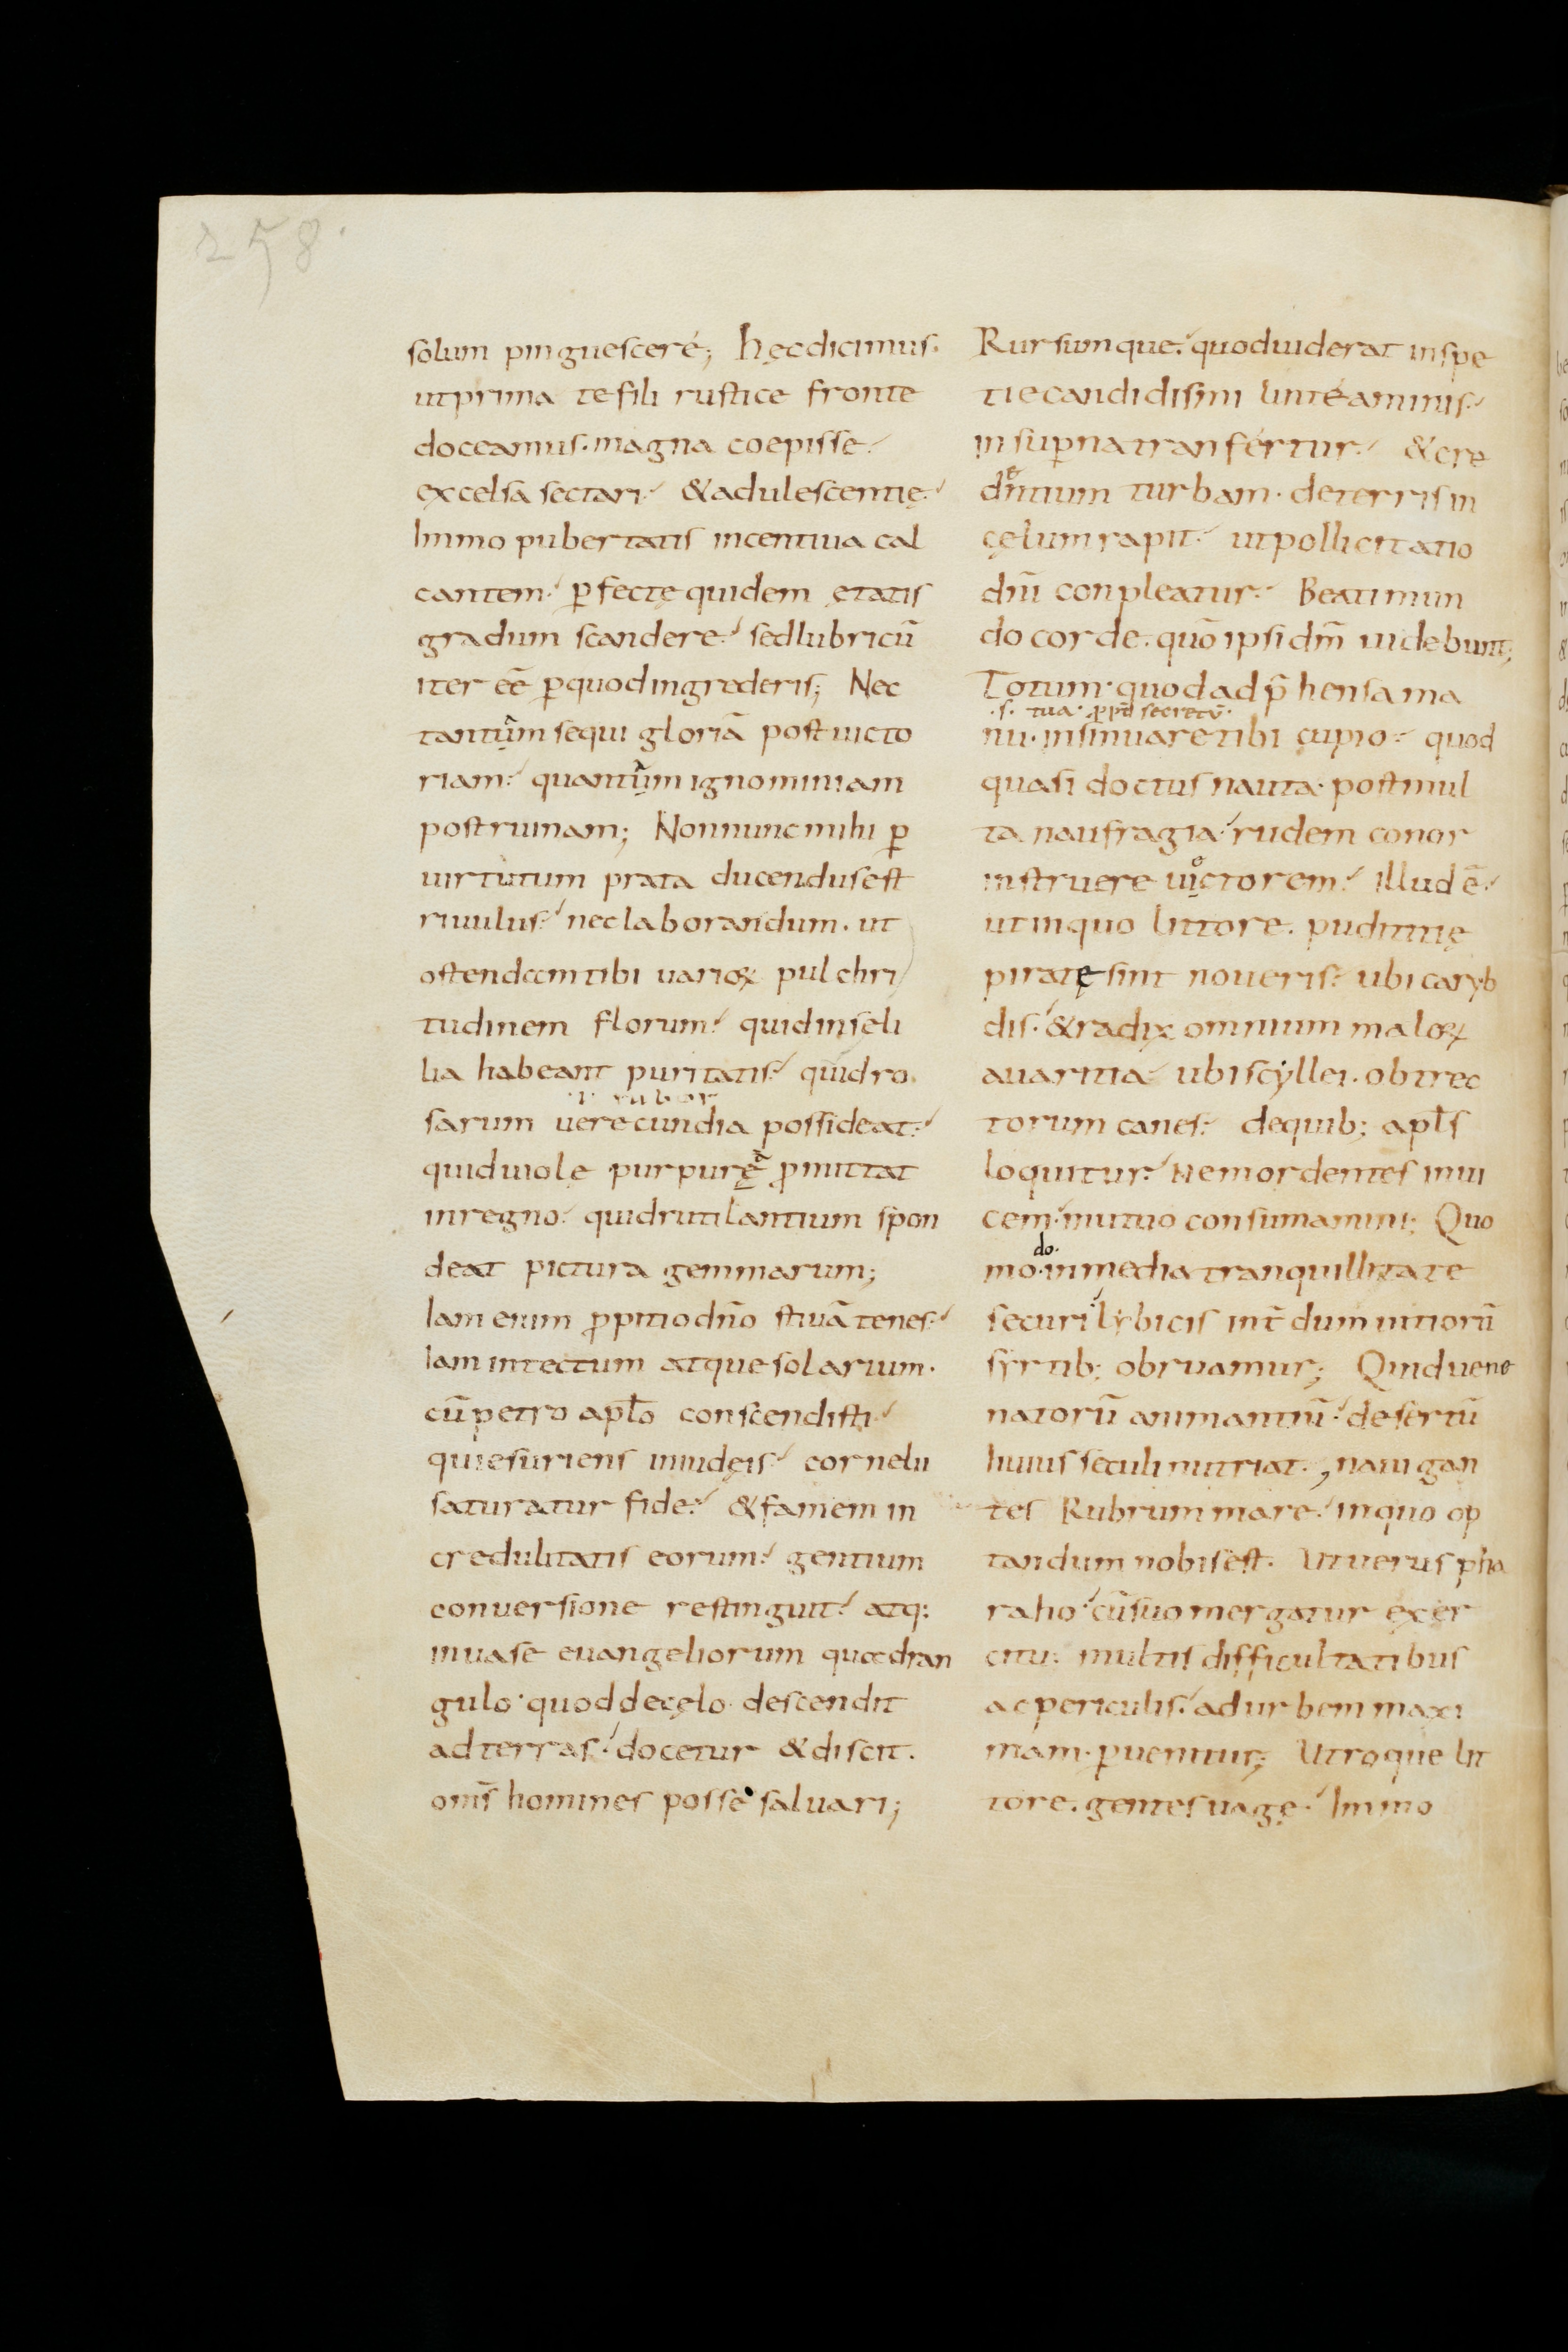 258.
solum pinguescere; hęc dicimus.
ut prima te fili rustice fronte
doceamus. magna coepisse.
excelsa sectari. & adulescentię.
Immo pubertatis incentiua cal
cantem. ꝑfectę quidem ętatis
gradum scandere. sed lubricū
iter eē ꝑ quod ingrederis; Nec
tantum sequi gloriā post uicto
riam. quantum ignominiam
post ruinam; Non nunc mihi ꝑ
uirtutum prata ducendus est
riuulus. nec laborandum. ut
ostendam tibi uarioꝝ pulchri
tudinem florum. quid in se li
lia habeant puritatis. quid ro
.i. rubor
sarum uerecundia possideat.
quid uiolę purpurę ꝓmittat
in regno. quid rutilantium spon
deat pictura gemmarum;
Iam enim ꝓpitio dn̄o stiuā tenes.
Iam in tectum atque solarium.
cū petro apl̄o conscendisti.
qui esuriens in iudęis. cornelii
saturatur fide. & famem in
credulitatis eorum. gentium
conuersione restinguit. atq:
in uase euangeliorum quadran
gulo. quod de cęlo descendit
ad terras. docetur & discit.
om̄s homines posse saluari;
Rursumque. quod uiderat in spe
tie candidisimi linteaminis.
in suꝑna tranfertur. & cre
e
dn̄tium turbam. de terris in
cęlum rapit. ut pollicitatio
dn̄i conpleatur. Beati mun
do corde. quō ipsi dm̄ uidebunt;
Totum. quod adp̄hensa ma
.s. tua. ꝓpt̄ secretū.
nu. insinuare tibi cupio. quod
quasi doctus nauta. post mul
ta naufragia. rudem conor
o
instruere uictorem. Illud ē.
ut in quo littore. pudititię
piratę sint noueris. ubi caryb
dis. & radix omnium maloꝝ
auaritia. ubi scyllei. obtrec
torum canes. de quib; apl̄s
loquitur. Ne mordentes inui
cem. mutuo consumamini; Quo
do.
mo. in media tranquillitate
securi lybicis int̄dum uitiorū
syrtib; obruamur; Quid uene
natorū animantiū. desertū
huius seculi nutriat. nauigan
tes Rubrum mare. in quo op
tandum nobis est. Ut uerus pha
raho. cū suo mergatur exer
citu. multis difficultatibus
ac periculis. ad urbem maxi
mam. ꝑuenitur; Utroque lit
tore. gentes uagę. Immo